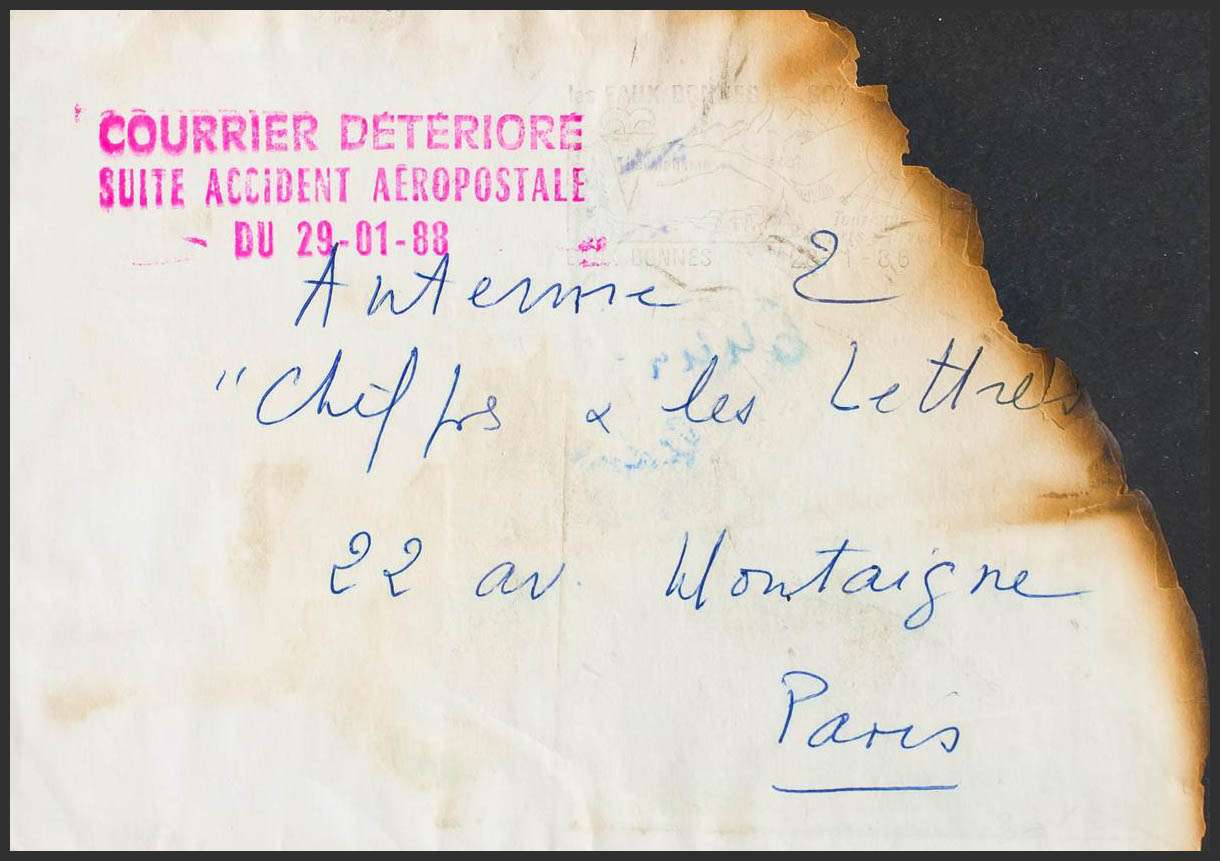 COURRIER DÉTÉRIORÉ
SUITE ACCIDENT AÉROPOSTALE
DU 29-01-88
les EAUX BONNES
BONNES
Antenne 2
"Chiffres & les Lettres
22 av. Montaigne
Paris